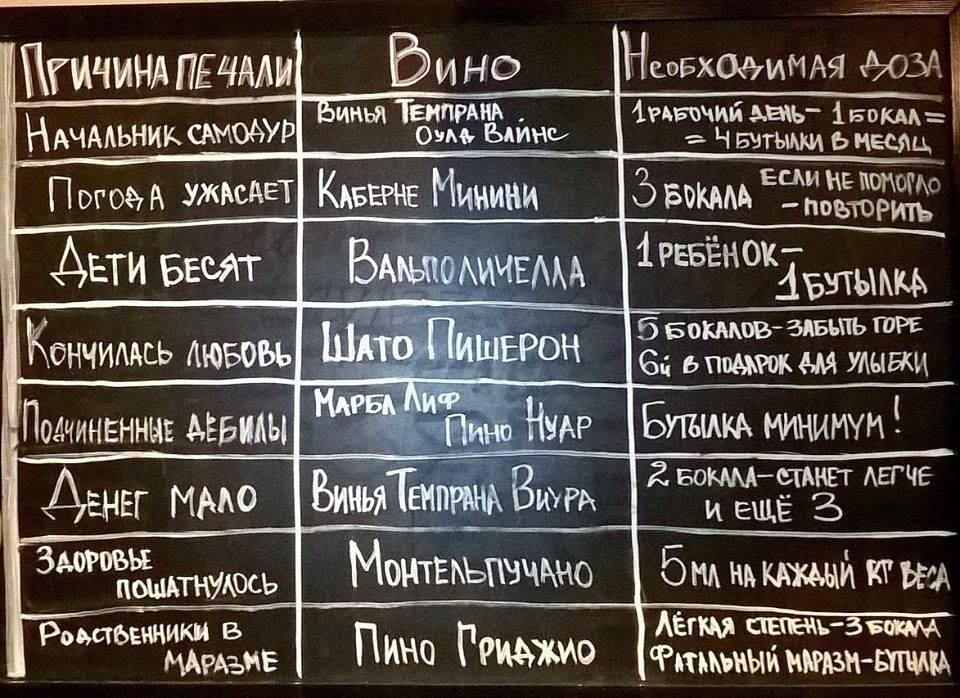 Причина печали
Вино
Необходимая доза
Начальник самодур
Винья Темпрана
Оулд Вайнс
1 рабочий день – 1 бокал =
= 4 бутылки в месяц
Погода ужасает
Каберне Минини
3 бокала если не помогло
– повторить
Дети бесят
Вальполичелла
1 ребёнок –
1 бутылка
Кончилась любовь
Шато Пишерон
5 бокалов – забыть горе
6й в подарок для улыбки
Подчиненные дебилы
Марбл Лиф
Пино Нуар
Бутылка минимум!
Денег мало
Винья Темпрана Виура
2 бокала – станет легче
и ещё 3
Здоровье
пошатнулось
Монтельпучано
5 мл на каждый кг веса
Родственники в
маразме
Пино Гриджио
Лёгкая степень – 3 бокала
Фатальный маразм – бутылка